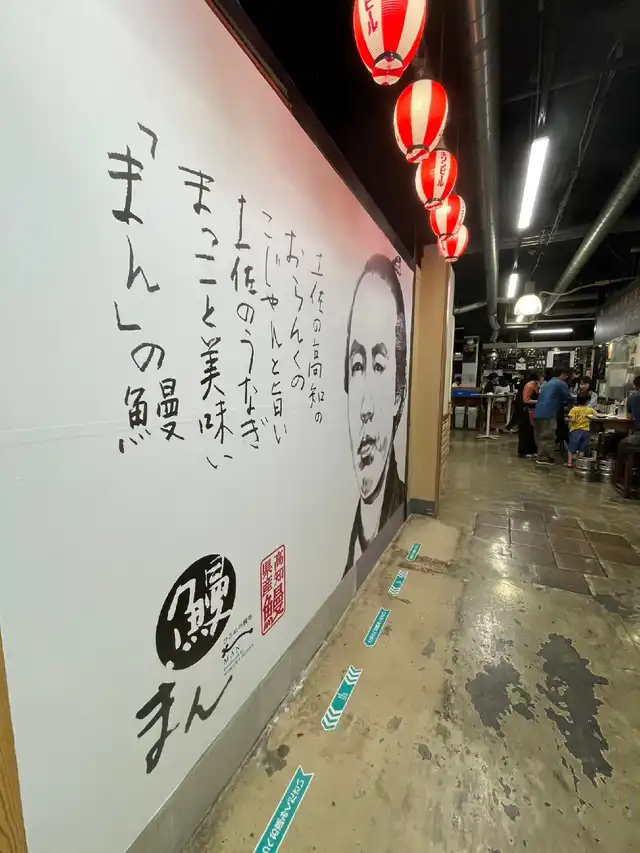 土佐の高知の
おらんくの
こじゃんと旨い
土佐のうなぎ
まっこと美味い
「まん」の鰻
鰻
まん
高知県産鰻
キリンビール